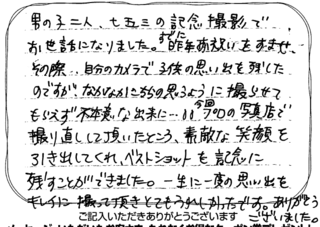 男の子二人、七五三の記念撮影で
お世話になりました。すでに昨年お祝いをすませ、
その際、自分のカメラで子供の思い出を残した
のですが、なかなかこちらの思うように撮らせて
もらえず不本意な出来に…!! 今回の写真店で
撮り直しして頂いたところ、素敵な笑顔を
引き出してくれ、ベストショットを記念に
残すことができました。一生に一度の思い出を
キレイに撮って頂きとてもうれしかったです。ありがとう
ございました。
ご記入いただきありがとうございます